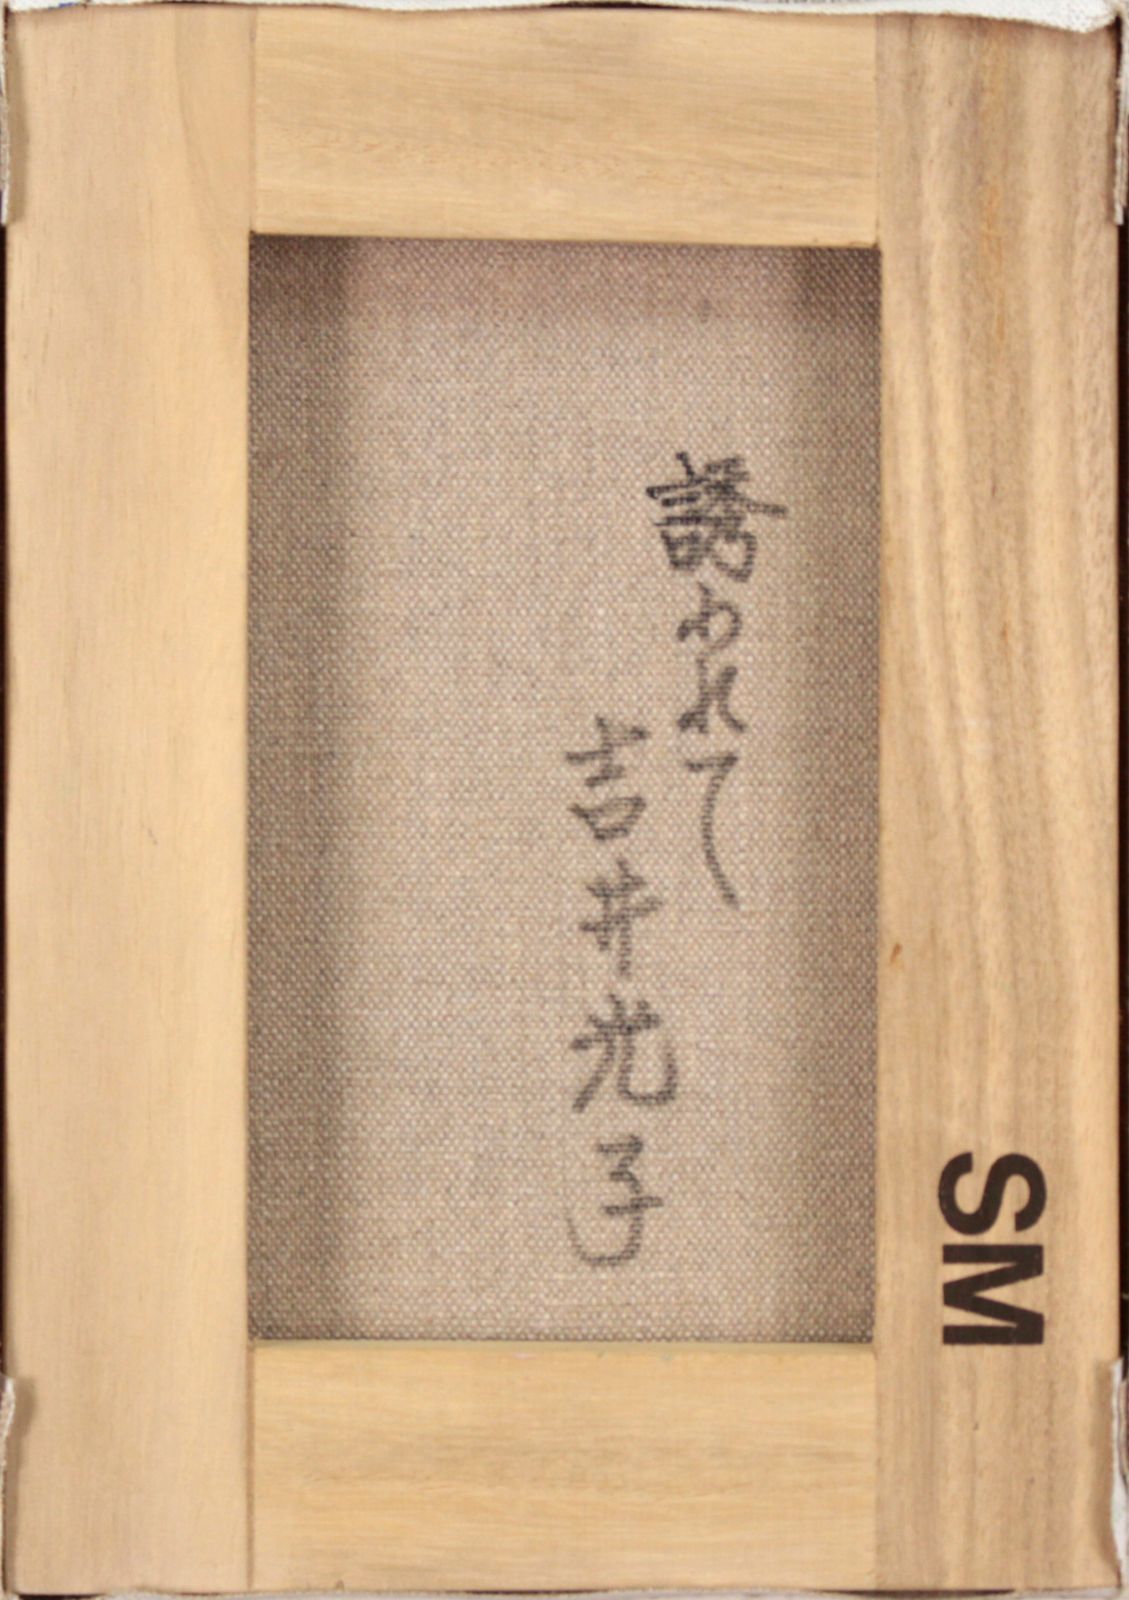 誘われて
吉井光子
SM